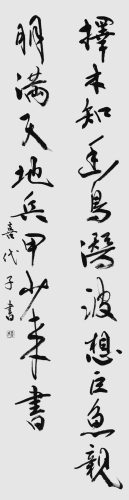 擇木知幽鳥潛波想巨魚親
朋滿天地兵甲少来書
喜代子書